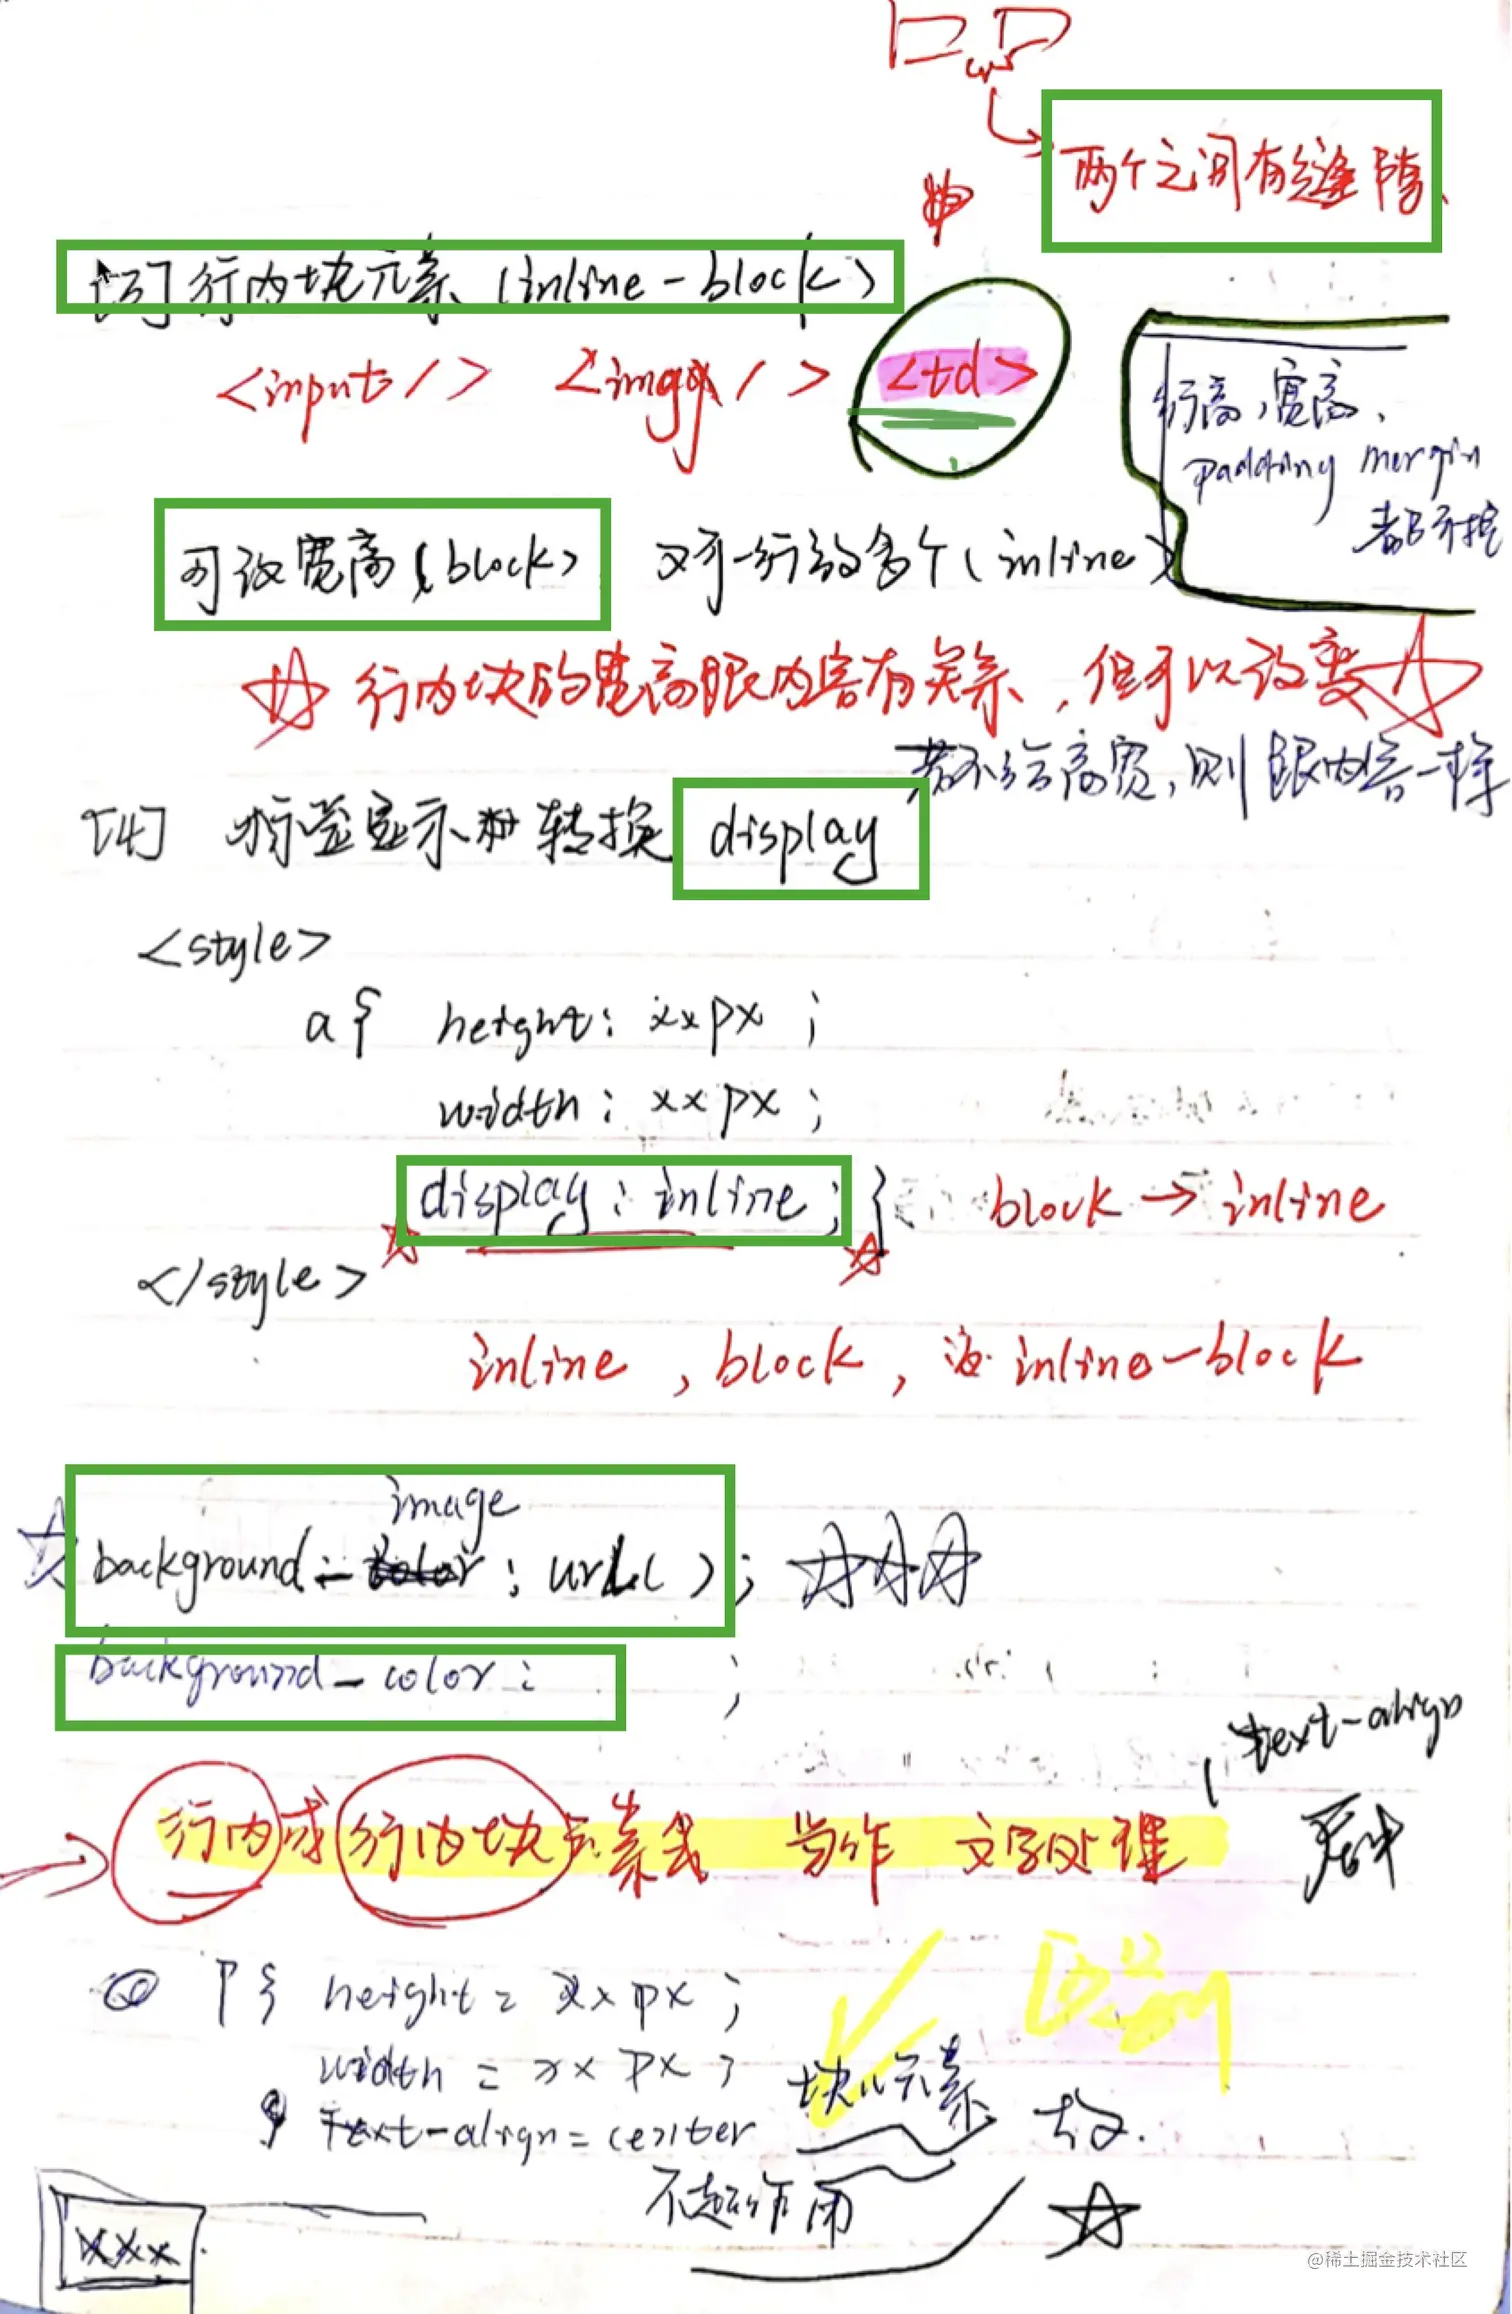 两个之间有缝隙
[3] 行内块元素 (inline-block)
<input/> <img/> <td>
行高,宽高,
padding margin
都可控
可改宽高(block) 又可一行放多个(inline)
行内块的宽高跟内容有关系,但可以改变
若不给高宽,则跟内容一样
[4] 标签显示 转换 display
<style>
a{ height: xxpx ;
width: xxpx ;
display: inline; } block → inline
</style>
inline , block , inline-block
image
background- : url( ) ;
background-color: ;
text-align
行内或行内块元素会 当作 文字处理
居中
P{ height = xxpx ;
区别
width = xx px ;
块元素
text-align = center
不起作用
xxx
@稀土掘金技术社区